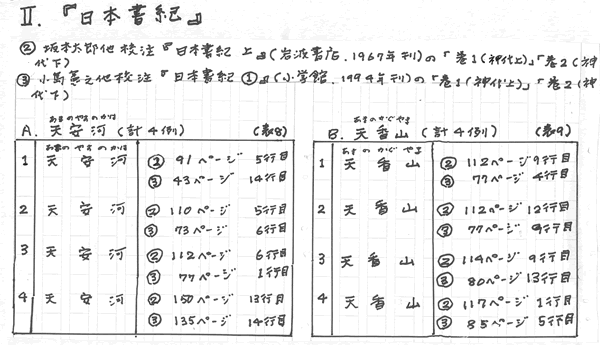 II. 『日本書紀』
② 坂本太郎他 校注『日本書紀 上』(岩波書店、1967年刊)の「巻1(神代上)」「巻2(神
代下)
③ 小島憲之他校注『日本書紀 ①』(小学館、1994年刊)の「巻1(神代上)」「巻2(神
代下)
あまのやすのかは
A. 天安河 (計4例) (表8)
あまのやすのかは
1 天安河 ② 91ページ 5行目
③ 43ページ 14行目
2 天安河 ② 110ページ 5行目
③ 73ページ 6行目
3 天安河 ② 112ページ 6行目
③ 77ページ 1行目
4 天安河 ② 150ページ 13行目
③ 135ページ 14行目
あまのかぐやま
B. 天香山 (計4例) (表9)
あまのかぐやま
1 天香山 ② 112ページ 9行目
③ 77ページ 4行目
2 天香山 ② 112ページ 12行目
③ 77ページ 9行目
3 天香山 ② 114ページ 9行目
③ 80ページ 13行目
4 天香山 ② 117ページ 1行目
③ 85ページ 5行目